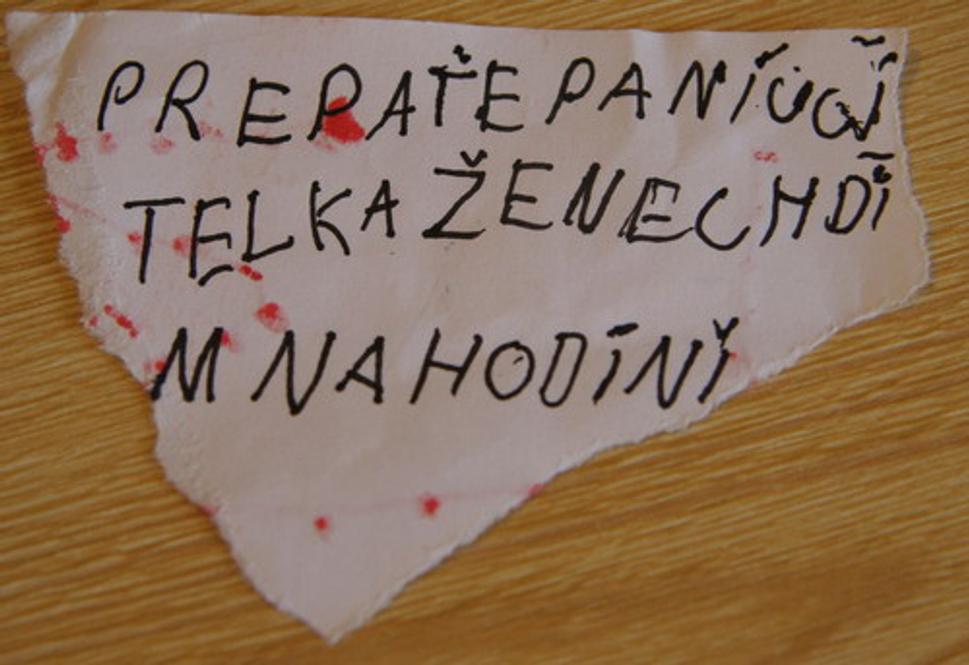 PREPAŤEPANÍUČĬ
TELKAŽENECHDĬ
MNAHODINĬ